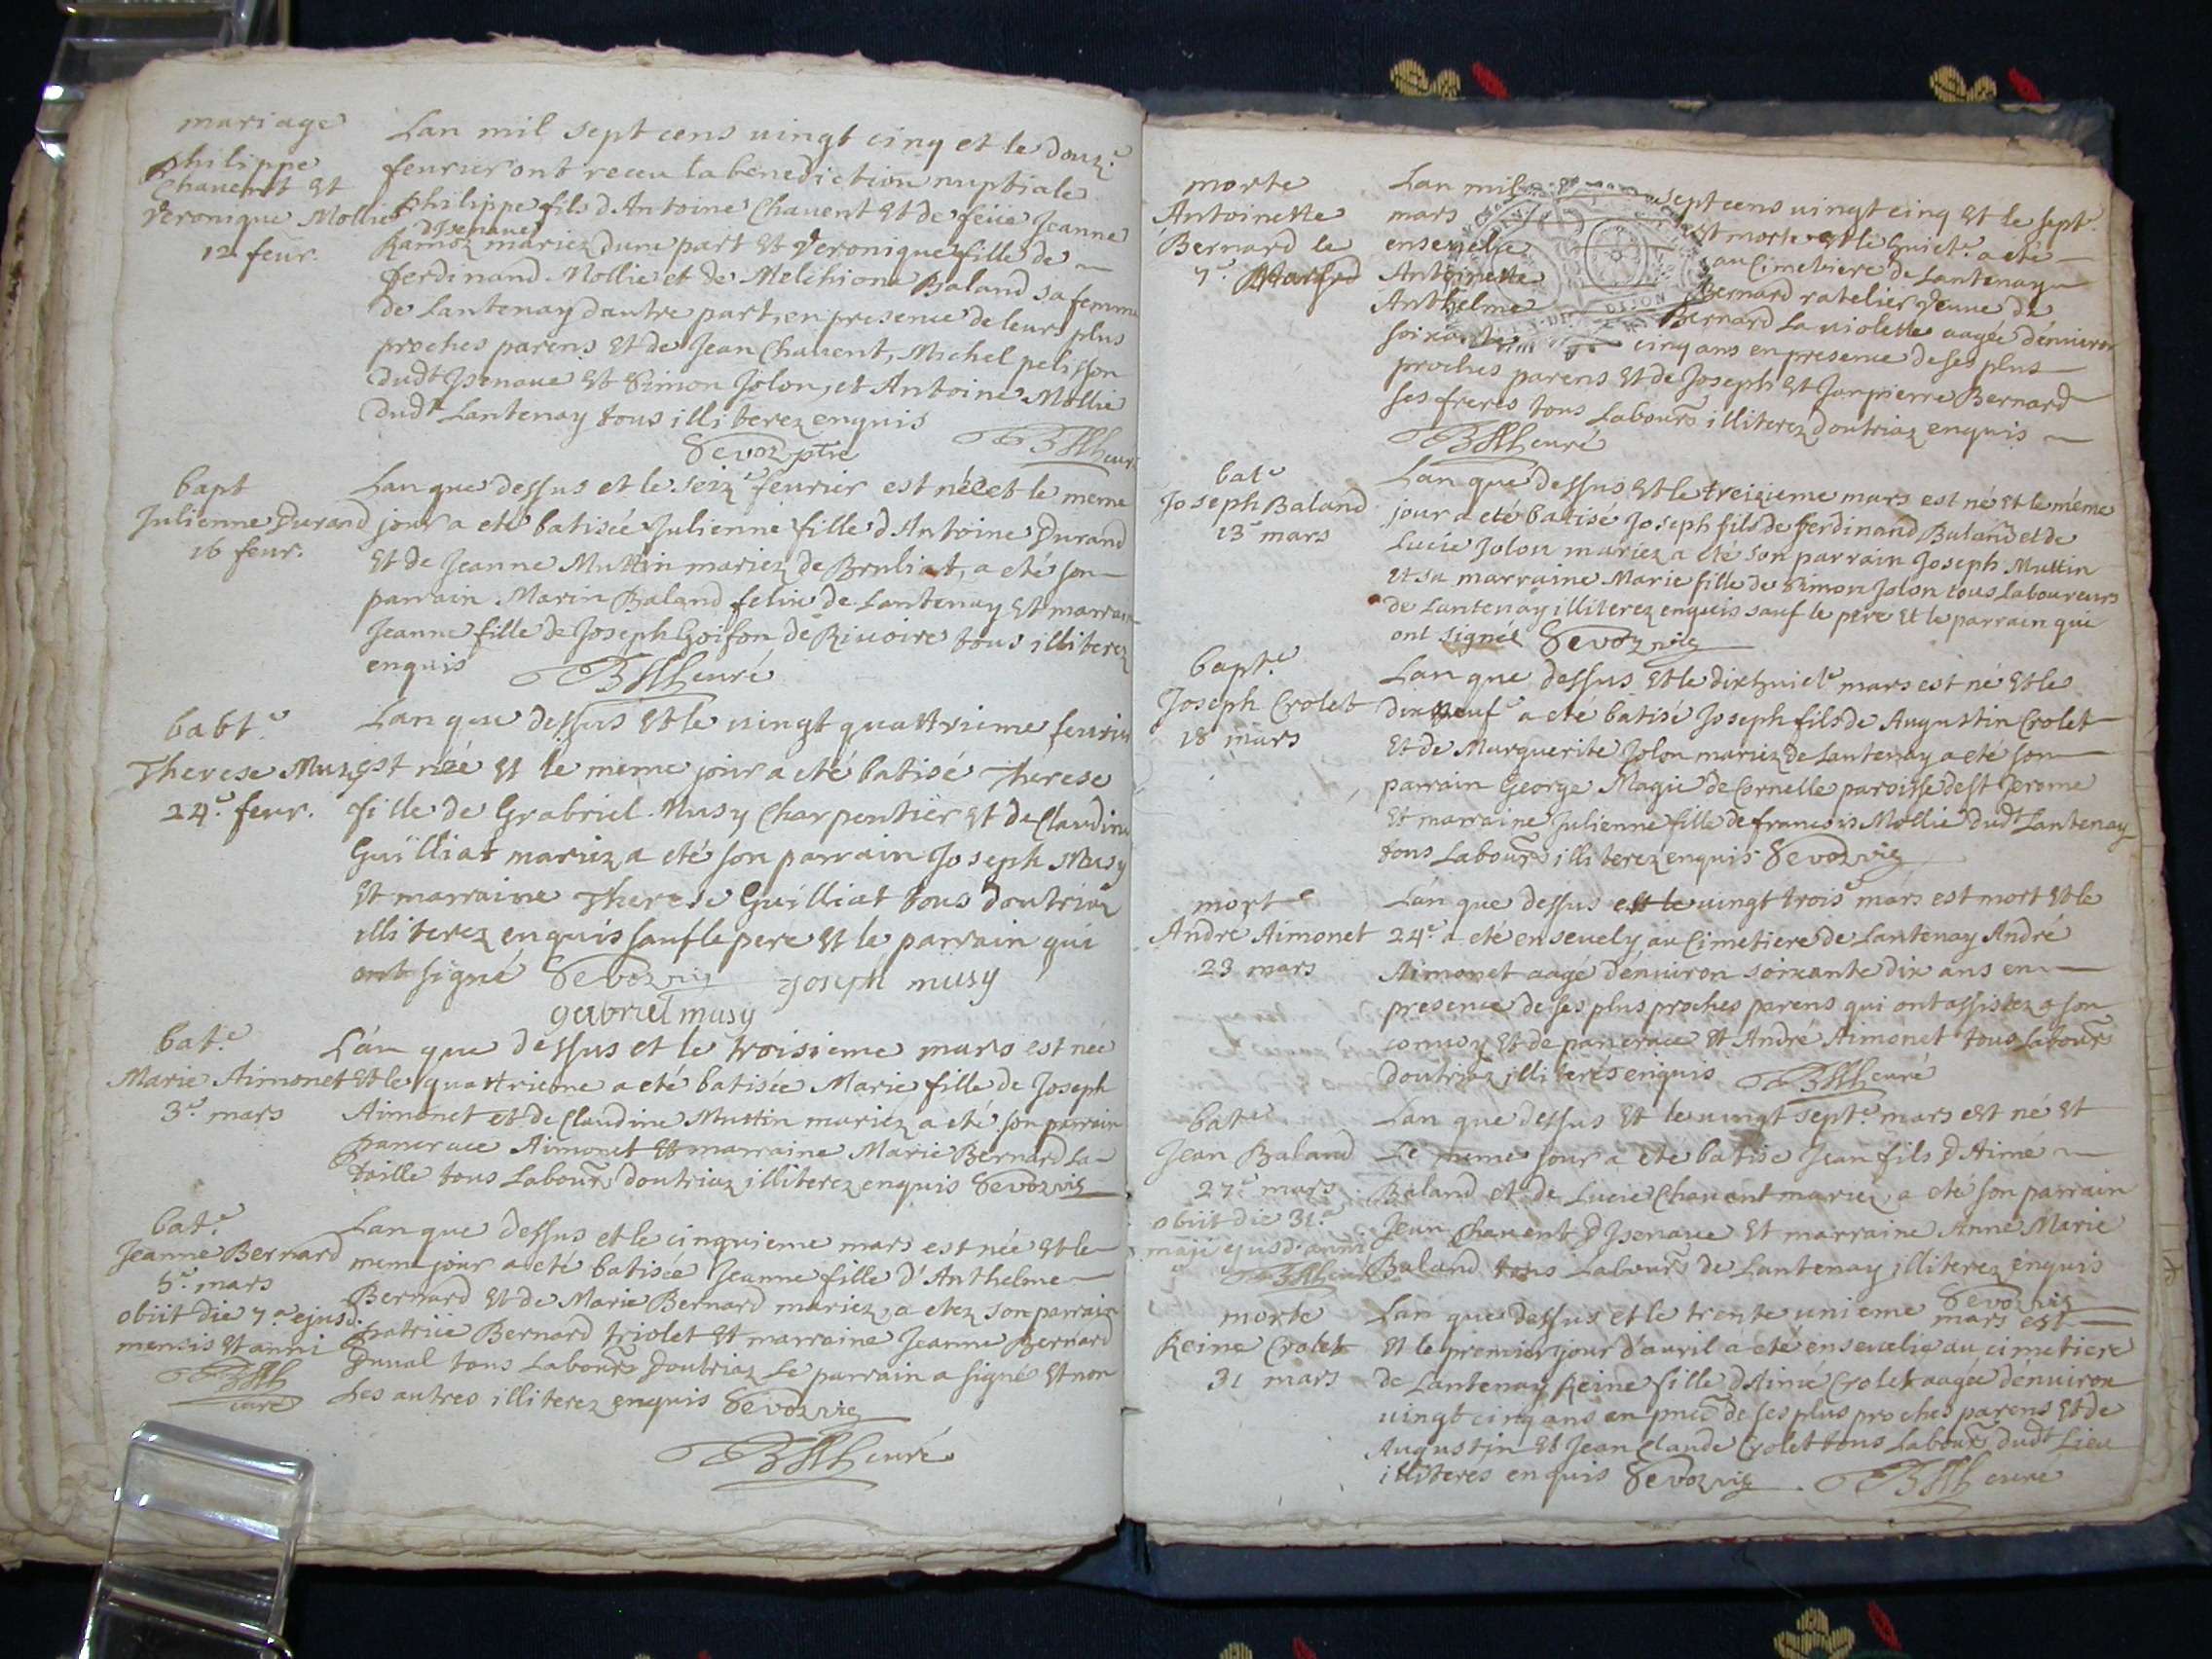 mariage
philippe
Chavent Et
Veronique Mollie
12 feur.
Lan mil sept cens uingt cinq et le douz.e
feurier ont receu la benediction nuptiale
philippe fils d Antoine Chauent Et de feüe Jeanne
dIsenaue
Ramoz mariez dune part Et Veronique fille de
ferdinand Mollie et de Melchione Baland sa femme
de Lantenay dautre part, en presence de leurs plus
proches parens Et de Jean Chauent, Michel pelisson
dudt Isenaue Et Simon Jolon, et Antoine Mollie
dudt Lantenay tous illiterez enquis
Sevoz ptre
curé
bapt
Julienne Durand
16 feur.
Lan que dessus et le seize feurier est née et le meme
jour a eté batisée Julienne fille d'Antoine Durand
Et de Jeanne Muttin mariez de Bruliat, a eté son
parrain Marin Baland felix de Lantenay Et marraine
Jeanne fille de Joseph Goifon de Riuoire tous illiterez
enquis
curé
babt.e
Therese Musy
24.e feur.
Lan que dessus Et le uingt quattrieme feurier
est née Et le meme jour a eté batisé Therese
fille de Grabriel Musy Charpentier Et de Claudine
Guilliat mariez a eté son parrain Joseph Musy
Et marraine Therese Guilliat tous doutriaz
illiterez enquis sauf le pere Et le parrain qui
ont signé Sevoz vic Joseph musy
gabriel musy
bat.e
Marie Aimonet
3.e mars
Lan que dessus et le troisieme mars est née
Et le quattrieme a eté batisée Marie fille de Joseph
Aimonet et de Claudine Muttin mariez a eté son parrain
pancrace Aimonet Et marraine Marie Bernard La
taille tous Labours doutriaz illiterez enquis Sevoz vic
bat.e
Jeanne Bernard
5.e mars
obiit die 7.a ejusd.
mensis Et anni
curé
Lan que dessus et le cinquieme mars est née Et le
meme jour a eté batisée Jeanne fille d'Anthelme
Bernard Et de Marie Bernard mariez, a etez son parrain
patrice Bernard triolet Et marraine Jeanne Bernard
Duual tous Labours doutriaz Le parrain a signé Et non
Les autres illiterez enquis Sevoz vic
curé
morte
Antoinette
Bernard le
7.e
Lan mil sept cens uingt cinq Et le sept.e
mars est morte Et le huict.e a eté
enseuelie au Cimetiere de Lantenay
Antoinette Bernard ratelier Veuue de
Anthelme Bernard La uiolette aagée d'enuiron
soixante cinq ans en presence de ses plus
proches parens Et de Joseph Et Janpierre Bernard
ses freres tous Labours illiterez doutriaz enquis
curé
bat.e
Joseph Baland
13.e mars
Lan que dessus Et le treizieme mars est né Et le méme
jour a eté batisé Joseph fils de ferdinand Baland et de
Lucie Jolon mariez a eté son parrain Joseph Muttin
Et sa marraine Marie fille de Simon Jolon tous Laboureurs
de Lantenay illiterez enquis sauf le pere Et le parrain qui
ont signéé Sevoz vic
bapt.e
Joseph Crolet
18 mars
Lan que dessus Et le dixhuict.e mars est né Et le
dixneuf.e a eté batisé Joseph fils de Augustin Crolet
Et de Marguerite Jolon mariez de Lantenay a eté son
parrain George Magie de Cornelle paroisse de st Jerome
Et marraine Julienne fille de francois Mollie dudt Lantenay
tous Labours illiterez enquis Sevoz vic
mort
André Aimonet
23 mars
Lan que dessus est le uingt trois.e mars est mort Et le
24.e a eté enseuely au Cimetiere de Lantenay André
Aimonet aagé d'enuiron soixante dix ans en
presence de ses plus proches parens qui ont assistez a son
conuoy Et de pancrace Et André Aimonet tous Labours
doutriaz illiterés enquis curé
bat.e
Jean Baland
27.e mars
obiit die 31.a
maji ejusd. anni
Lan que dessus Et le uingt sept.e mars est né Et
Le meme jour a eté batisé Jean fils d Aimé
Baland et de Lucie Chauent mariez, a eté son parrain
Jean Chauent d Isenaue Et marraine Anne Marie
Baland tous Labours de Lantenay illiterez enquis
Sevoz vic
morte
Reine Crolet
31 mars
Lan que dessus et le trente unieme mars est
Et le premier jour d'auril a eté enseuelie au cimetiere
de Lantenay Reine fille d'Aimé Crolet aagée d'enuiron
uingt cinq ans en pnce de ses plus proches parens Et de
Augustin Et Jean Claude Crolet tous Labours dudt Lieu
illiteres enquis Sevoz vic. curé